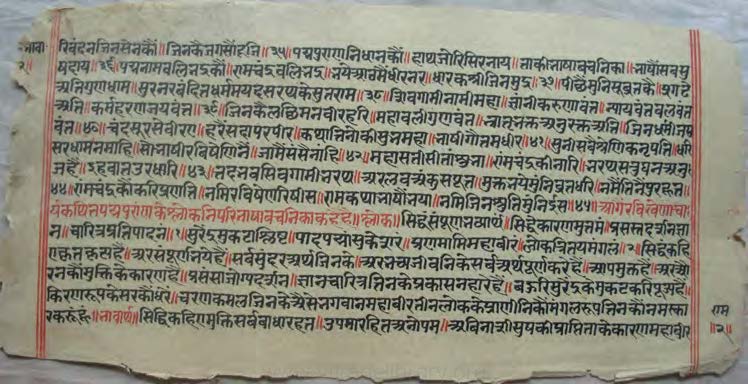 रिबंदनजिनसेनकौं॥जिनकैजगसौंहनि॥३५॥पद्मपुराणनिधानकौं॥हाथजोरिसिरनाय॥ताकीभाषाबचनिका॥भाषौंसबसु
षदाय॥३६॥पद्मनामबलिभद्रकौ॥रामचंद्रबलिभद्र॥भयेआठमेंधीरनर॥धारकश्रीजिनमुद्र॥३७॥पीछैमुनिसुब्रतकै॥प्रगटे
अतिगुणधाम॥सुरनरवंदितधर्ममयदसरथकेसुतराम॥३८॥शिवगामीनामीमहा॥ज्ञानीकरुणावंत॥न्यायवंतबलवंत
अति॥कर्महरणजयवंत॥३९॥जिनकैलछिमनबीरहरि॥महाबलीगुणवंत॥भ्रातभक्तअनुरक्तअति॥जिनधर्मीजस
वंत॥४०॥चंदसूरसेबीरए॥हरैसदापरपीर॥कथातिनोकीसुभमहा॥भाषीगौतमधीर॥४१॥सुनीसबैश्रेणिकनृपति॥धरि
सरधामनमाहि॥सोभाषीरविषेणिनै॥जामैंसंसैनाहि॥४२॥महासतीसीतासुभा॥रामचंद्रकीनारि॥भरथसत्रुघनअनु
जहै॥इहबातउरधारि॥४३॥तदभवसिवगामीभरथ॥अरलवअंकुसपूत॥मुक्तभयेमुनिब्रतधरि॥नमैंतिनैपुरहूत॥
४४॥रामचंद्रकौंकरिप्रणति॥नमिरविषेणरिषीस॥रामकथाभाषौंयथा॥नमिजिनश्रुतिमुनिईस॥४५॥आगैरविषेणाचा
र्यकथितपद्मपुराणकेश्लोकतिनपरिभाषाबचनिकाकरहै॥श्लोक॥सिद्धंसंपूर्णभव्यार्थं॥सिद्धेःकारणमुत्तमं॥प्रसस्तदर्शनज्ञा
न॥चारित्रप्रतिपादनं॥१॥सुरेंद्रमुकटाश्लिष्ट॥पादपद्मांसुकेशरं॥प्रणमामिमहाबीरं॥लोकत्रितयमंगलं॥२॥सिद्धकहि
एकृतकृत्यहै॥अरसंपूर्णभयेहै॥सर्वसुंदरअर्थजिनके॥अरभव्यजीवनिकेसर्वअर्थपूर्णकरैहै॥आपमुक्तहै॥अरऔ
रनकौमुक्तिकेकारणहै॥प्रसंसायोग्यदर्शन॥ज्ञानचारित्रतिनकेप्रकासनहारेहै॥बऊरिसुरेंद्रकेमुकटकरिपूज्यहै॥
किरणरूपकेसरकौंधरे॥चरणकमलजिनकेऐसेभगवानमहाबीरतीनलोककेप्राणीनिकौंमंगलरूपतिनकौंनमस्का
रकरूंहूं॥भावार्थ॥सिद्धिकहिएमुक्तिसर्वबाधारहत॥उपमारहितअनोपम॥अविनाशीसुषकीप्राप्तिताकेकारणमहाबीर
राम
॥२॥